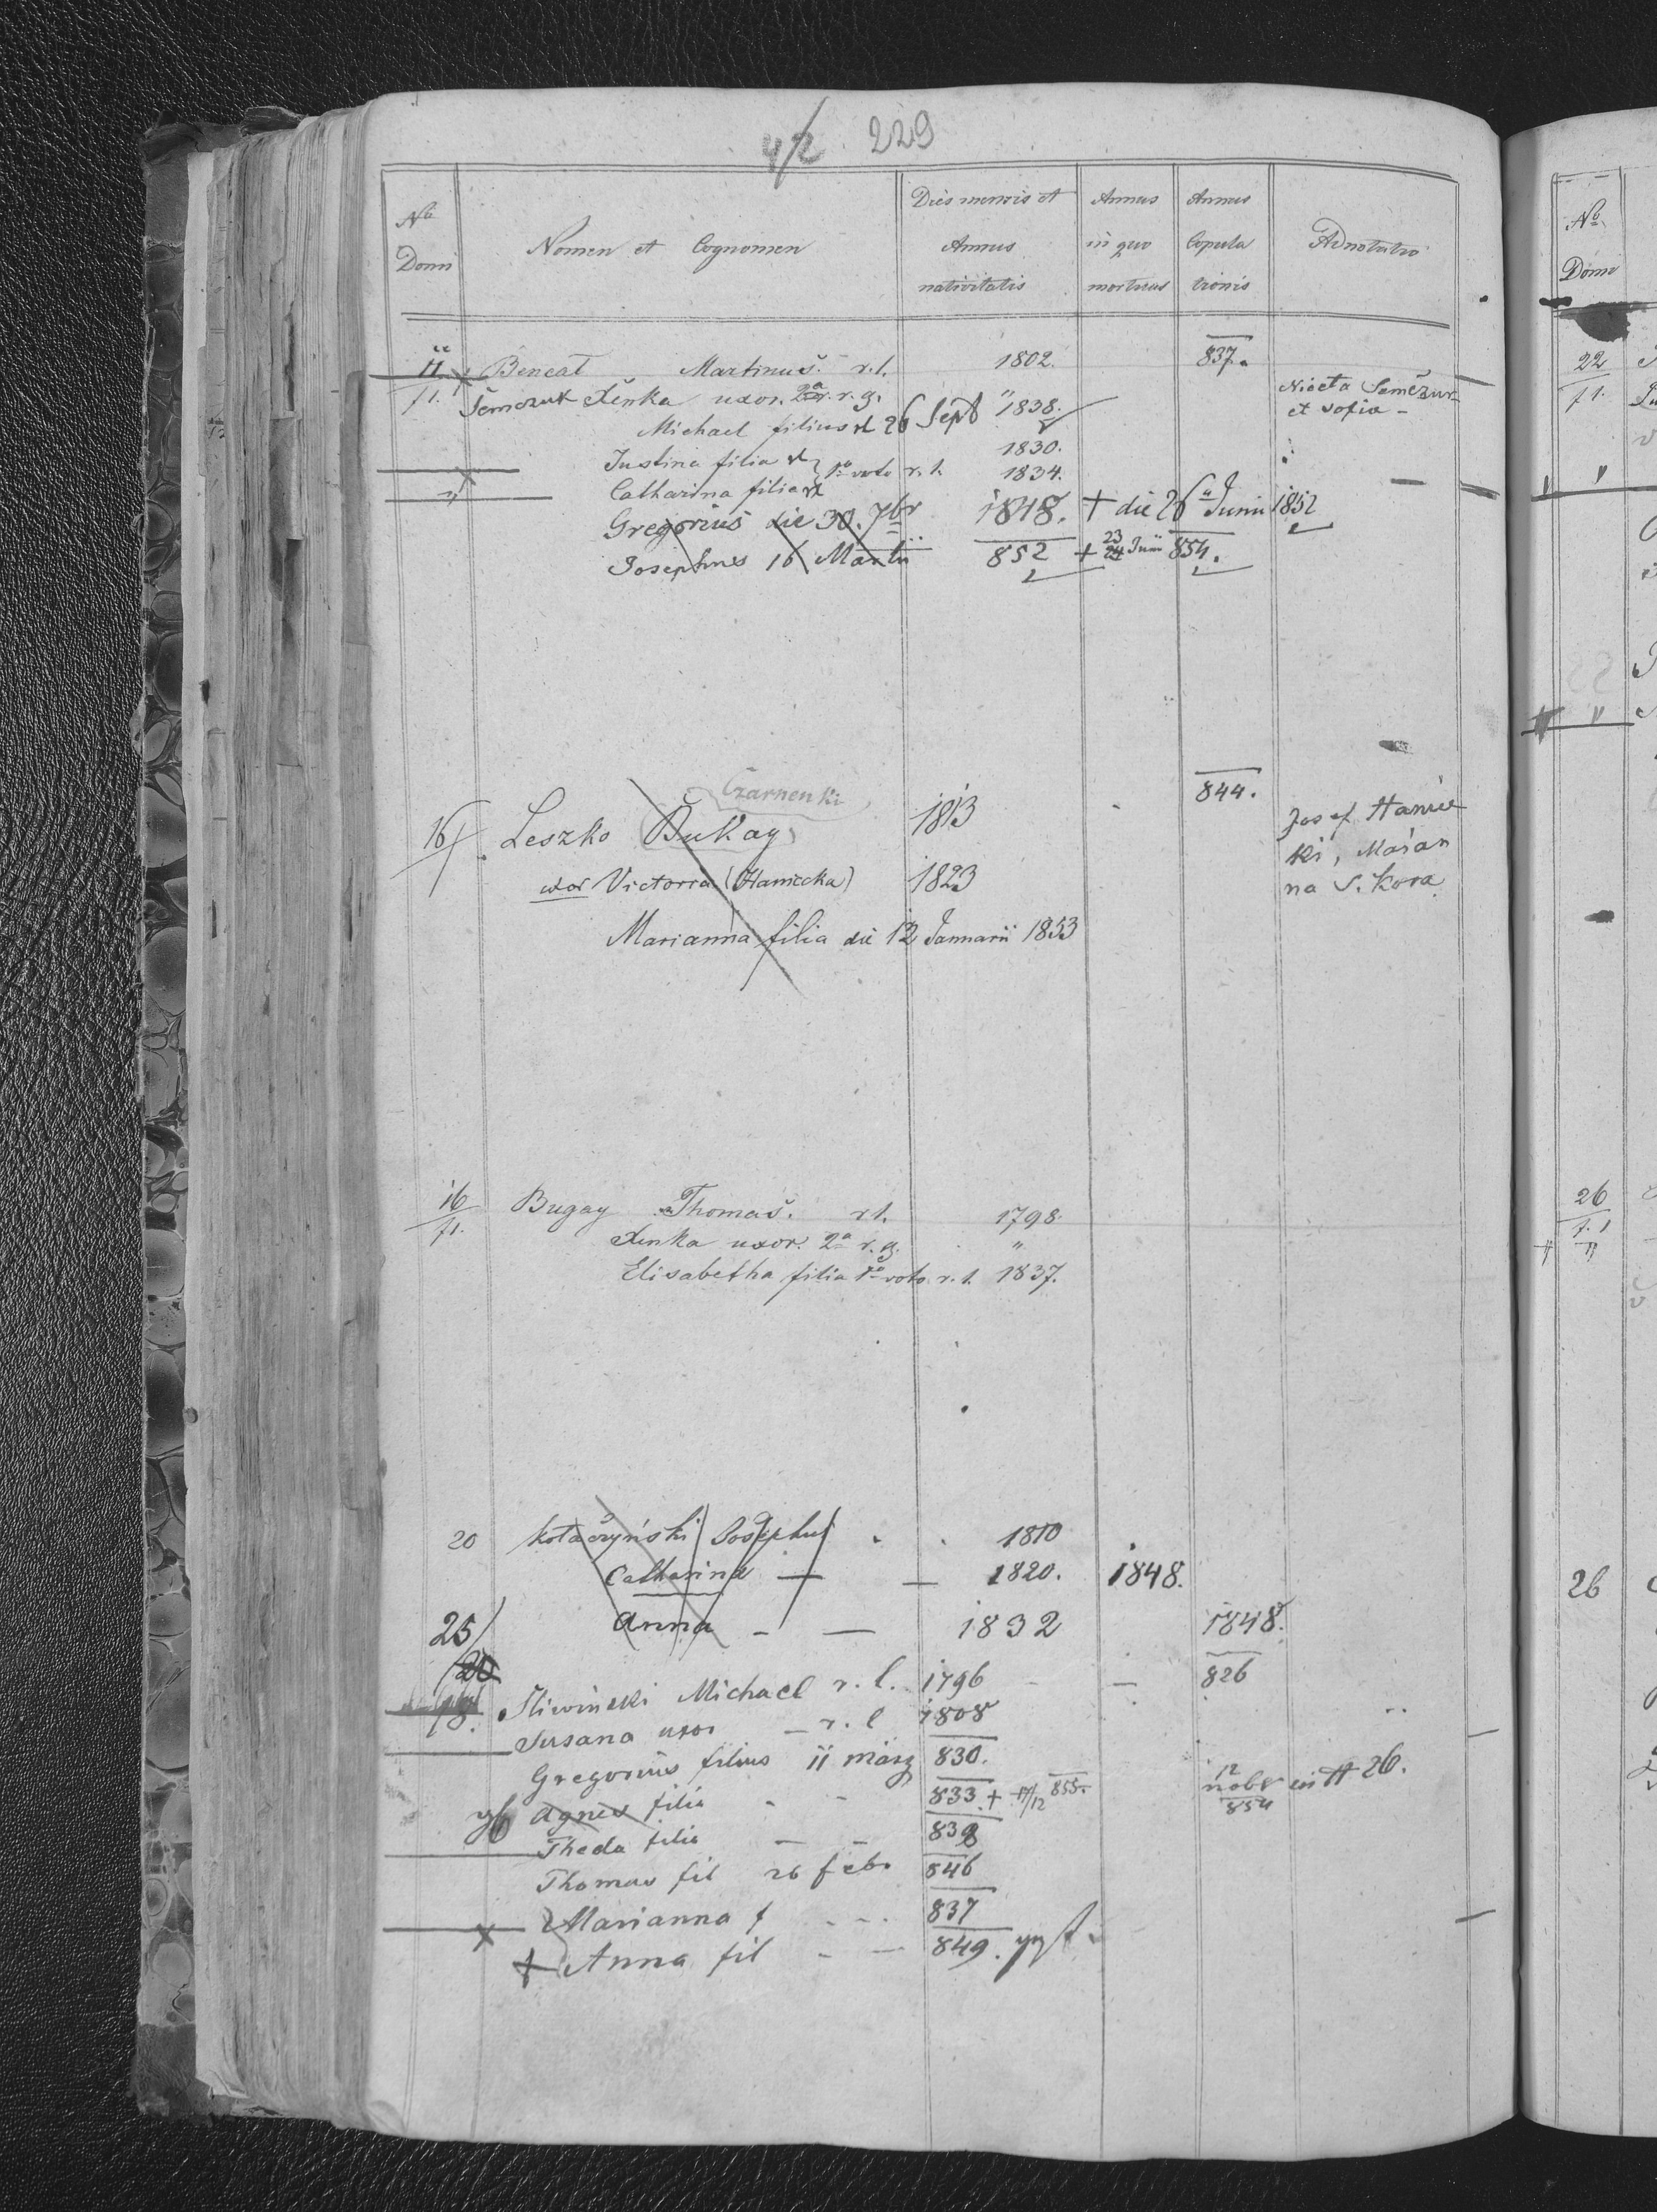 4/2 229
No Domi | Nomen et Cognomen | Dies mensis et Annus nativitatis | Annus in quo mortuus | Annus Copulationis | Adnotatio
11 Bencal Martinus. r.l. 1802. 837.
f1. Semczuk Xenka uxor. 2a r.g. " Niceta Semczuk
Michael filius 26 Sept 1838. et Sofia -
Justina filia 1830.
Catharina filia 1o voto r.l. 1834.
Gregorius die 30. 7br 1848. + die 26 Junii 1852
Josephus 16 Martii 852 + 23 Junii 854.
Czarnenki 844.
16 Leszko Bukay 1813 Josef Hanic
uxor Victoria (Haniecka) 1823 ki, Marian
na Sikora
Marianna filia die 12 Januarii 1853
16 Bugay Thomas. r.l. 1798.
f1. Xenka uxor. 2a r.g. "
Elisabetha filia 1o voto r.l. 1837.
20 Kołaczyński Josephus 1810
Catharina — — 1820. 1848.
25 Anna - — 1832 1848.
20
Sliwinski Michael r.l. 1796 - — 826
Susana uxor — r.l 1808
Gregorius filius 11 März 830.
Agnes filia - - 833 + 17/12 855. 12 nobr 854 in # 26.
Theda filia — - 838
Thomas fil 26 feb. 846
Marianna f - - - 837
+ Anna fil - — 849.
No Domi
22
f1.
26
f.1
26